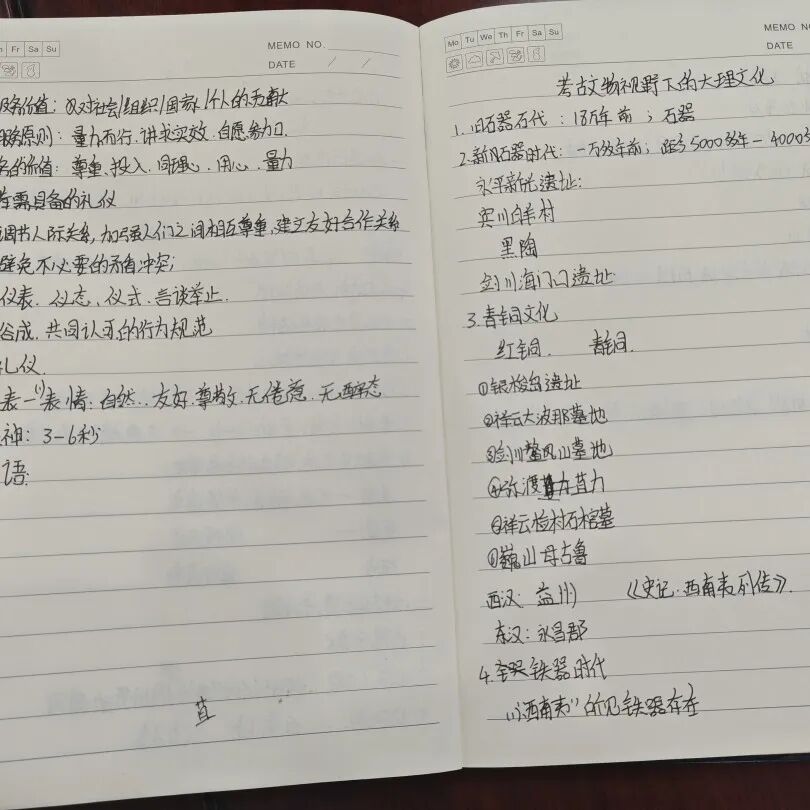 Fr Sa Su
MEMO NO.
DATE / /
服务价值：对社会/组织/国家/个人的贡献
服务原则：量力而行、讲求实效、自愿参加
的价值：尊重、投入、同理心、用心、量力
需具备的礼仪
调节人际关系，加强人们之间相互尊重，建立友好合作关系
避免不必要的矛盾冲突；
仪表、仪态、仪式、言谈举止.
俗成，共同认可的行为规范
礼仪.
表一(1)表情：自然、友好、尊敬、无倦怠、无醉态
神：3-6秒
语：
直
Mo Tu We Th Fr Sa Su
MEMO NO
DATE
考古文物视野下的大理文化
1.旧石器石代：18万年前；石器
2.新石器时代：一万多年前；距今5000多年-4000多
永平新光遗址：
宾川白羊村
黑陶
剑川海门口遗址
3.青铜文化
红铜. 青铜.
①银梭岛遗址
②祥云大波那墓地
③剑川鳌凤山墓地
④弥渡苴力
⑤祥云检村石棺墓
⑥巍山母古鲁
西汉：益州 《史记·西南夷列传》.
东汉：永昌郡
4.铁器时代
(1)"西南夷"所见铁器存在